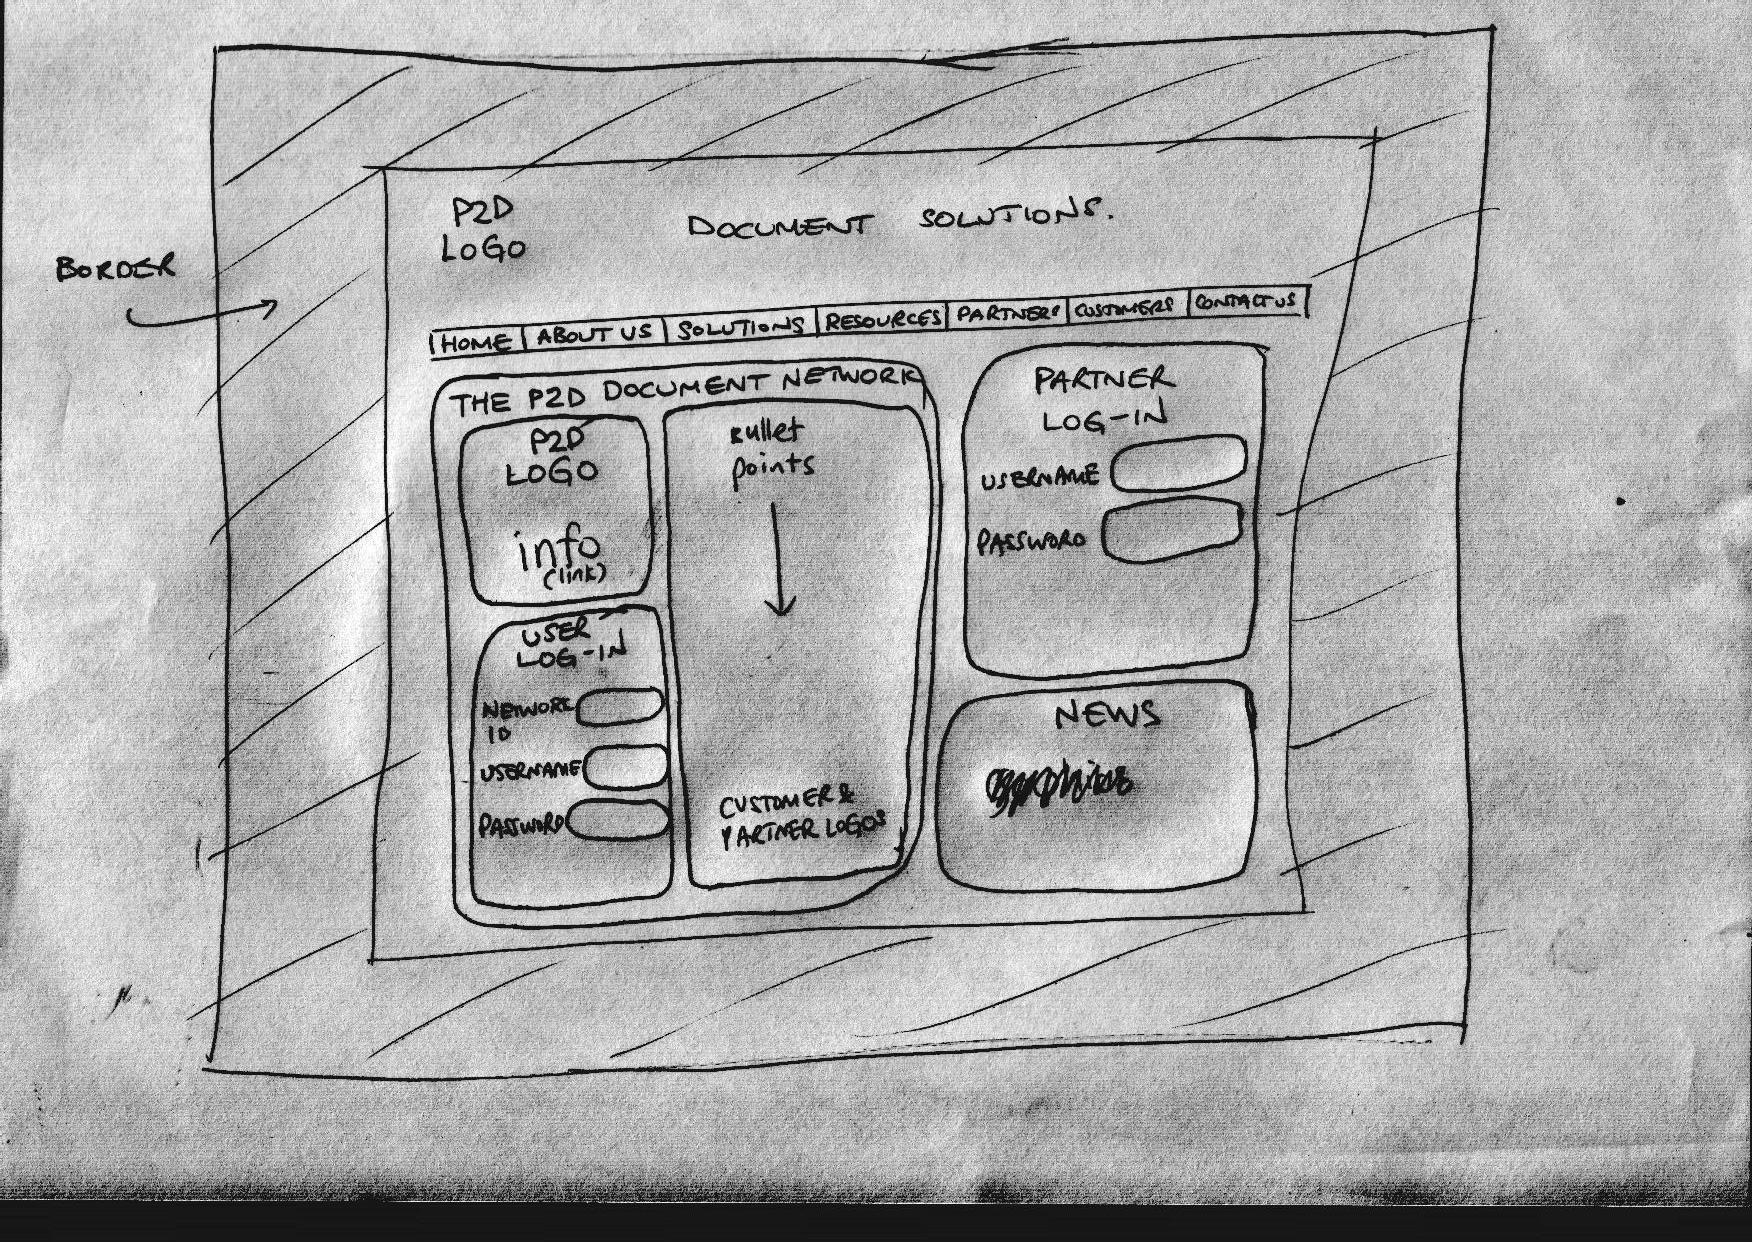 P2D
LOGO
DOCUMENT SOLUTIONS.
BORDER
HOME
ABOUT US
SOLUTIONS
RESOURCES
PARTNERS
CUSTOMERS
CONTACT US
THE P2D DOCUMENT NETWORK
P2D
LOGO
info
(link)
USER
LOG-IN
NETWORK
ID
USERNAME
PASSWORD
Bullet
points
CUSTOMER &
PARTNER LOGOS
PARTNER
LOG-IN
USERNAME
PASSWORD
NEWS